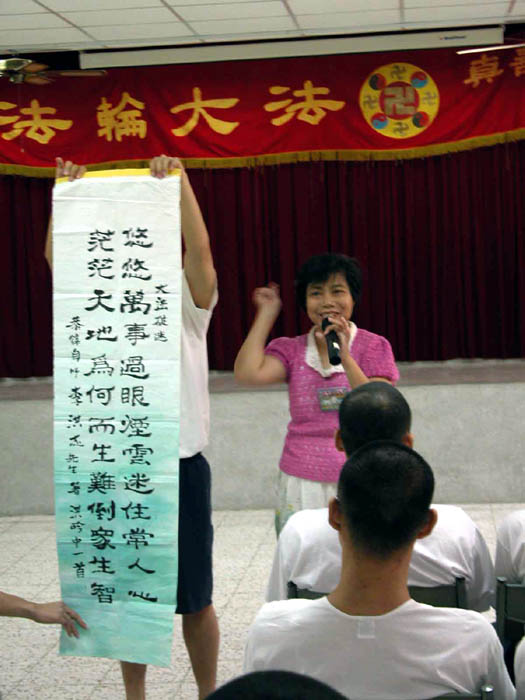 法輪大法
真善
大法破迷
悠悠萬事過眼煙雲迷住常人心
茫茫天地為何而生難倒眾生智
恭錄自 李洪志先生著洪吟中一首